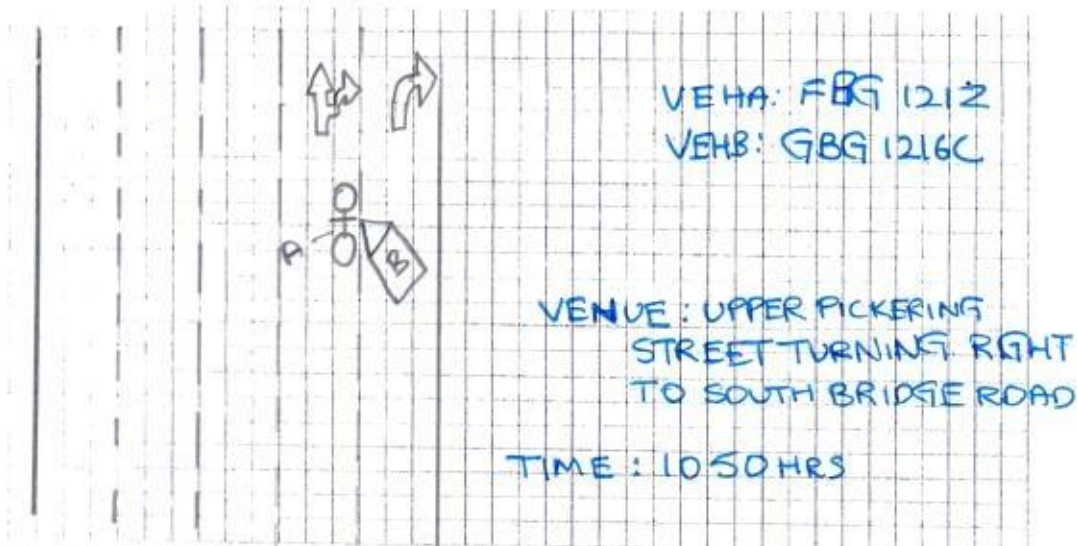 VEHA: FBG 121Z
VEHB: GBG 1216C
A
B
VENUE: UPPER PICKERING
STREET TURNING RIGHT
TO SOUTH BRIDGE ROAD
TIME: 1050HRS